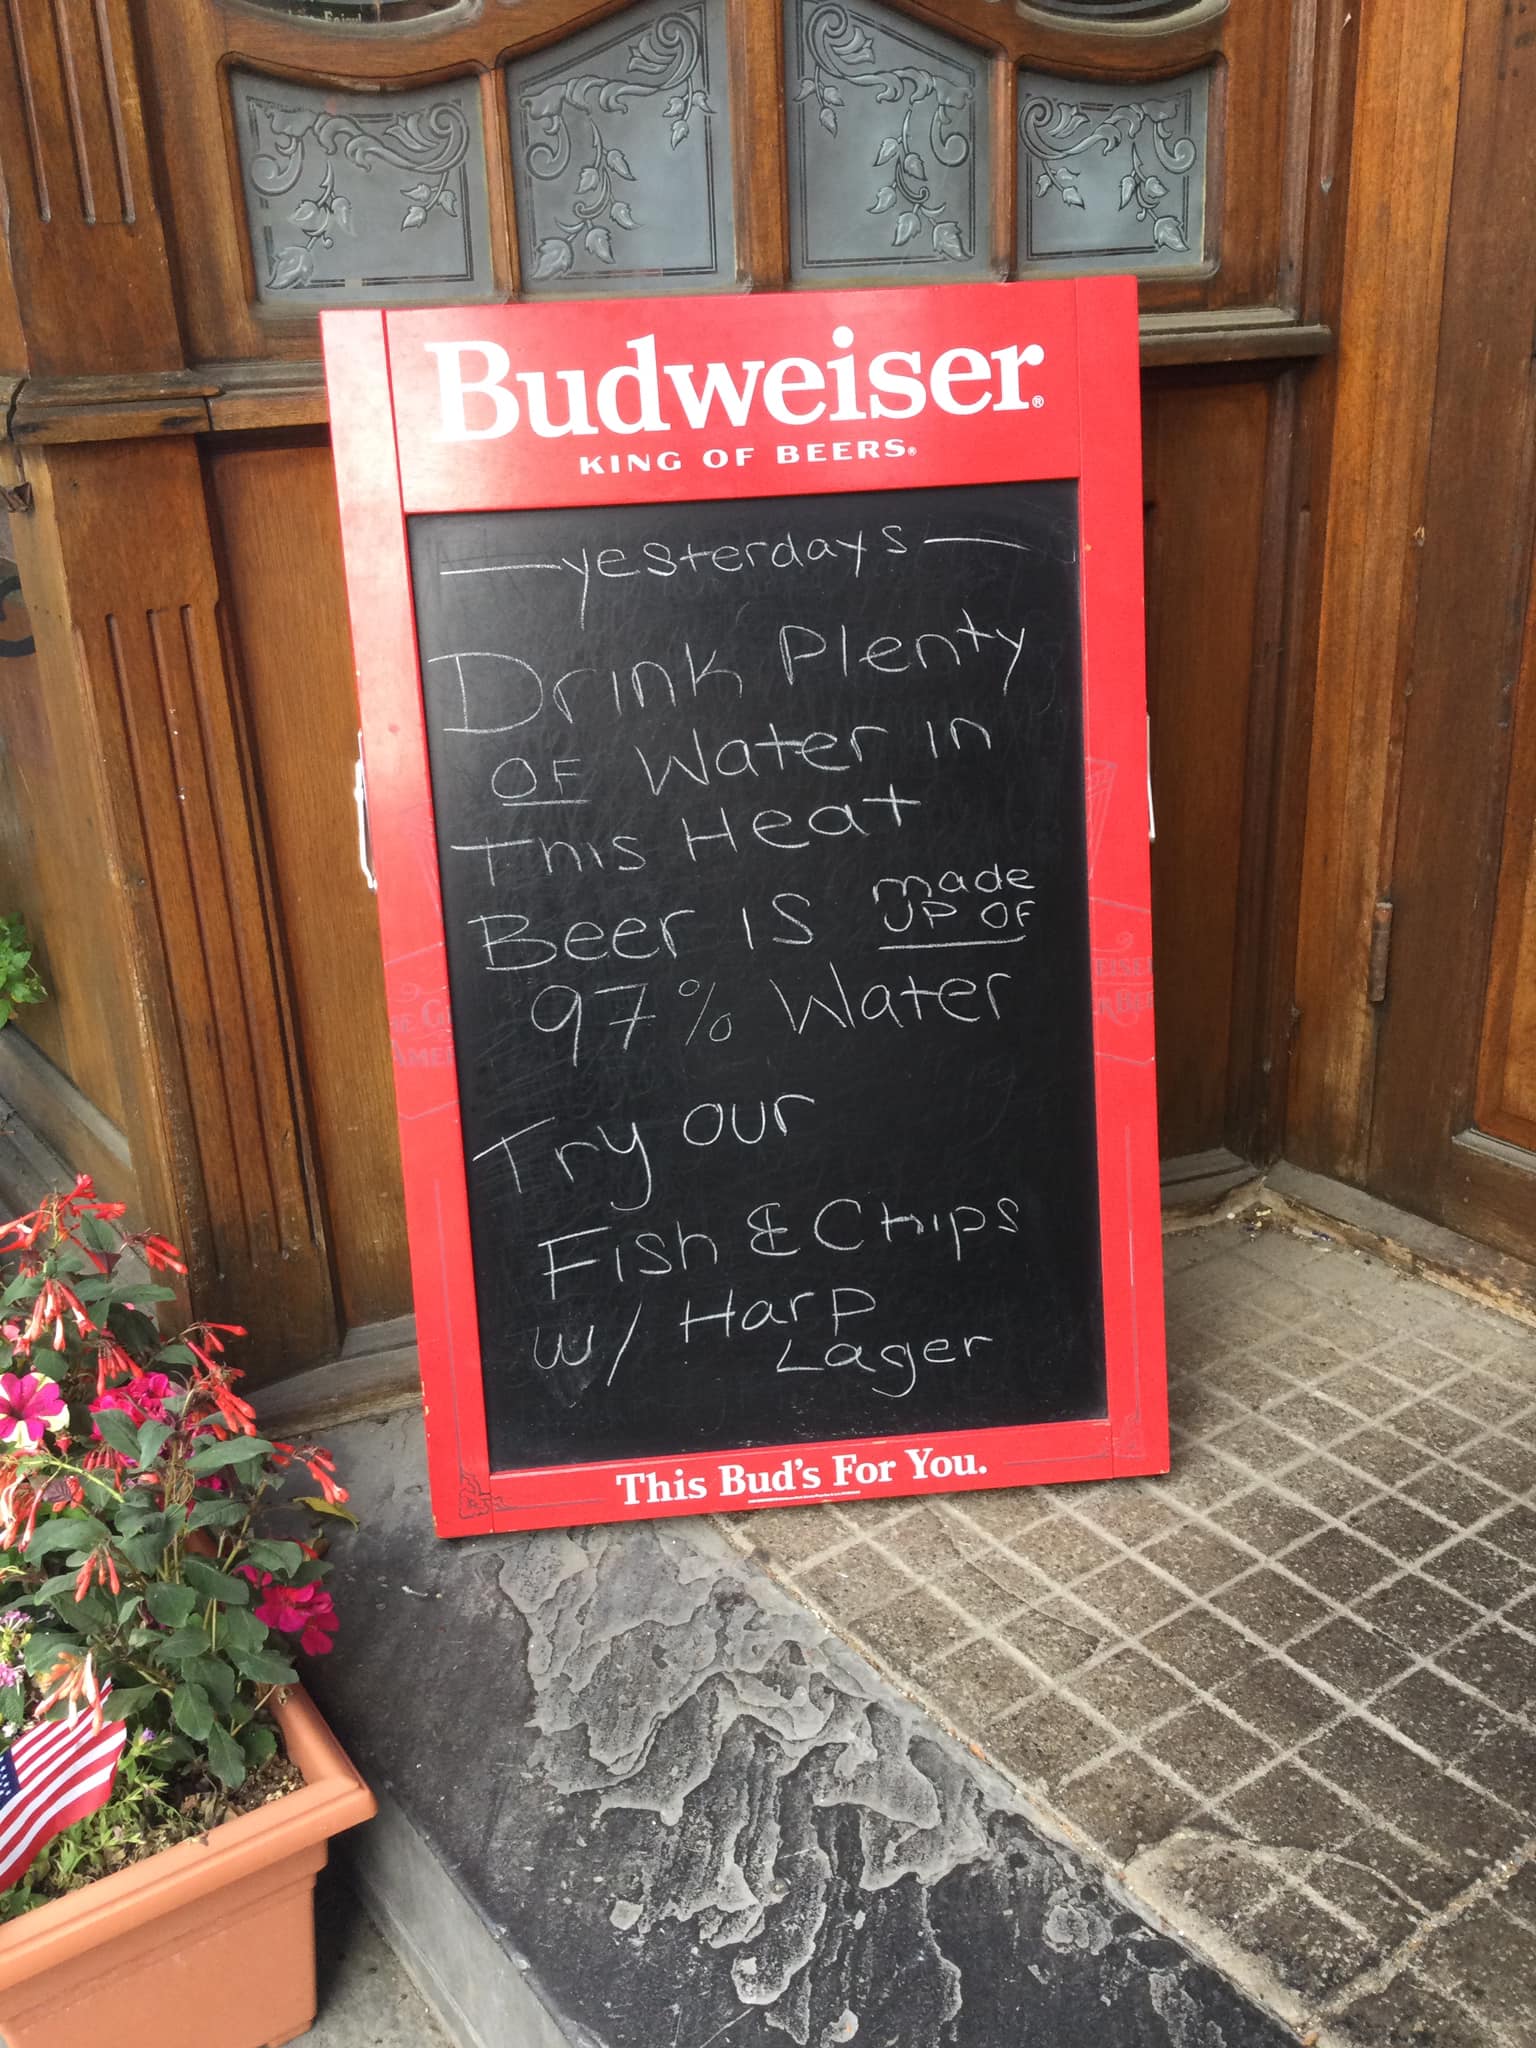 Budweiser®
KING OF BEERS®
— yesterdays —
Drink Plenty
OF Water in
This Heat
Beer is made
UP OF
97% Water
Try our
Fish & Chips
w/ Harp
Lager
This Bud's For You.